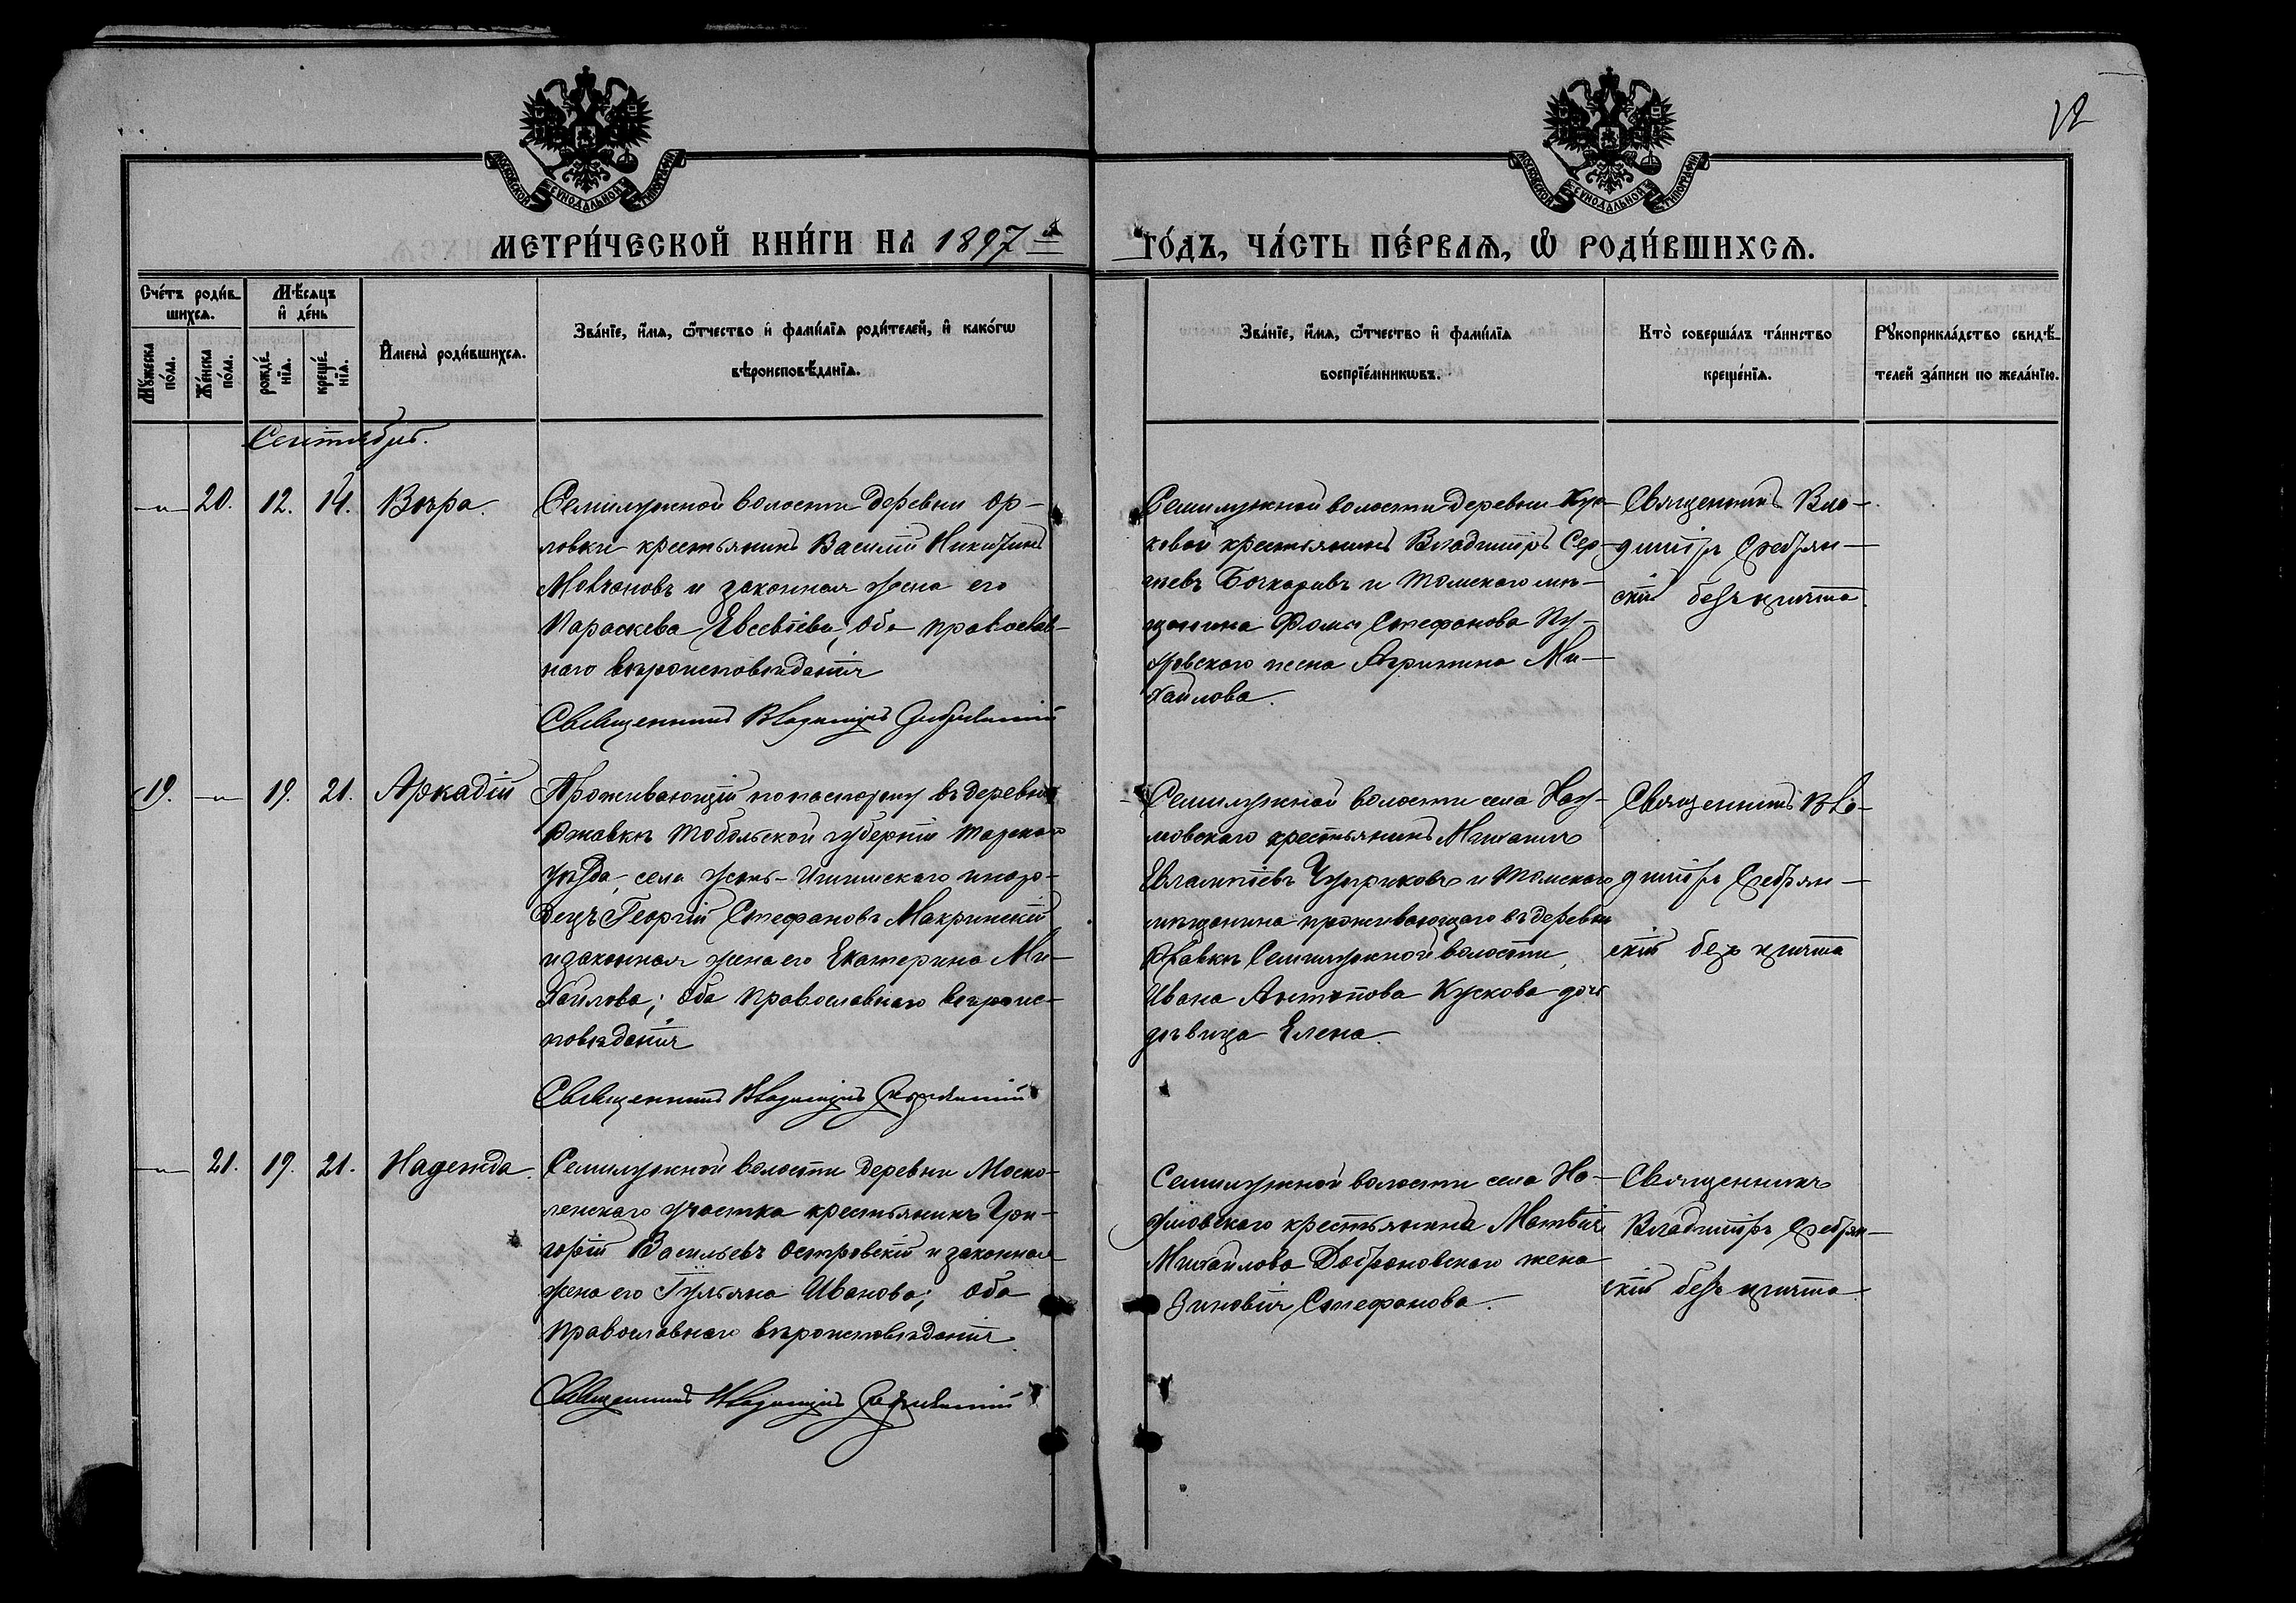 12
МОСКОВСКОЙ СѴНОДАЛЬНОЙ ТИПОГРАФІИ
МОСКОВСКОЙ СѴНОДАЛЬНОЙ ТИПОГРАФІИ
МЕТРИ́ЧЕСКОЙ КНИ́ГИ НА 1897й
ГО́ДЪ, ЧА́СТЬ ПЕ́РВАѦ, Ѡ҆ РОДИ́ВШИХСѦ.
Сче́тъ роди́в-
шихсѧ.
Мѣ́сѧцъ
и҆ де́нь
Мꙋ́жеска
по́ла.
Же́нска
по́ла.
рожде́-
нїѧ.
креще́-
нїѧ.
И҆мена̀ роди́вшихсѧ.
Зва́нїе, и҆́мѧ, ѻ҆́тчество и҆ фами́лїѧ роди́телей, и҆ како́гѡ
вѣроисповѣ́данїѧ.
Зва́нїе, и҆́мѧ, ѻ҆́тчество и҆ фами́лїѧ
воспрїе́мникѡвъ.
Кто̀ соверша́лъ та́инство
креще́нїѧ.
Рꙋкоприкла́дство свидѣ́-
телей за́писи по жела́нїю.
Сентябрь.
—„— 20. 12. 14. Вѣра.
Семилужной волости деревни Ор-
ловки крестьянинъ Василій Никитинъ
Молчановъ и законная жена его
Параскева Евсевіева; Оба православ-
наго вѣроисповѣданія
Священникъ Владиміръ
Семилужной волости деревни Кус-
ковой крестьянинъ Владиміръ Сер-
гіевъ Бочкаревъ и Томскаго мѣ-
щанина Фомы Стефанова
жена Агрипина Ми-
хайлова.
Священникъ Вла-
диміръ Серебрян-
скій безъ причта.
19. —„— 19. 21. Аркадій
Проживающій по паспорту въ деревнѣ
Ржавкѣ Тобольской губерніи Тарскаго
уѣзда, села Усть-Ишимскаго иноро-
децъ Георгій Стефановъ Макринскій
и законная жена его Екатерина Ми-
хайлова; Оба православнаго вѣроис-
повѣданія
Священникъ Владиміръ
Семилужной волости села Нау-
мовскаго крестьянинъ Михаилъ
Евлампіевъ и Томскаго
мѣщанина проживающаго въ деревнѣ
Ржавкѣ Семилужной волости,
Ивана Антипова Кускова дочь
дѣвица Елена.
Священникъ Вла-
диміръ Серебрян-
скій безъ причта
—„— 21. 19. 21. Надежда.
Семилужной волости деревни
участка крестьянинъ Гри-
горій Васильевъ Островскій и законная
жена его Іульяна Иванова; Оба
православнаго вѣроисповѣданія.
Священникъ Владиміръ
Семилужной волости села На-
умовскаго крестьянина Матвія
Михайлова жена
Зиновія Стефанова.
Священникъ
Владиміръ Серебрян-
скій безъ причта.